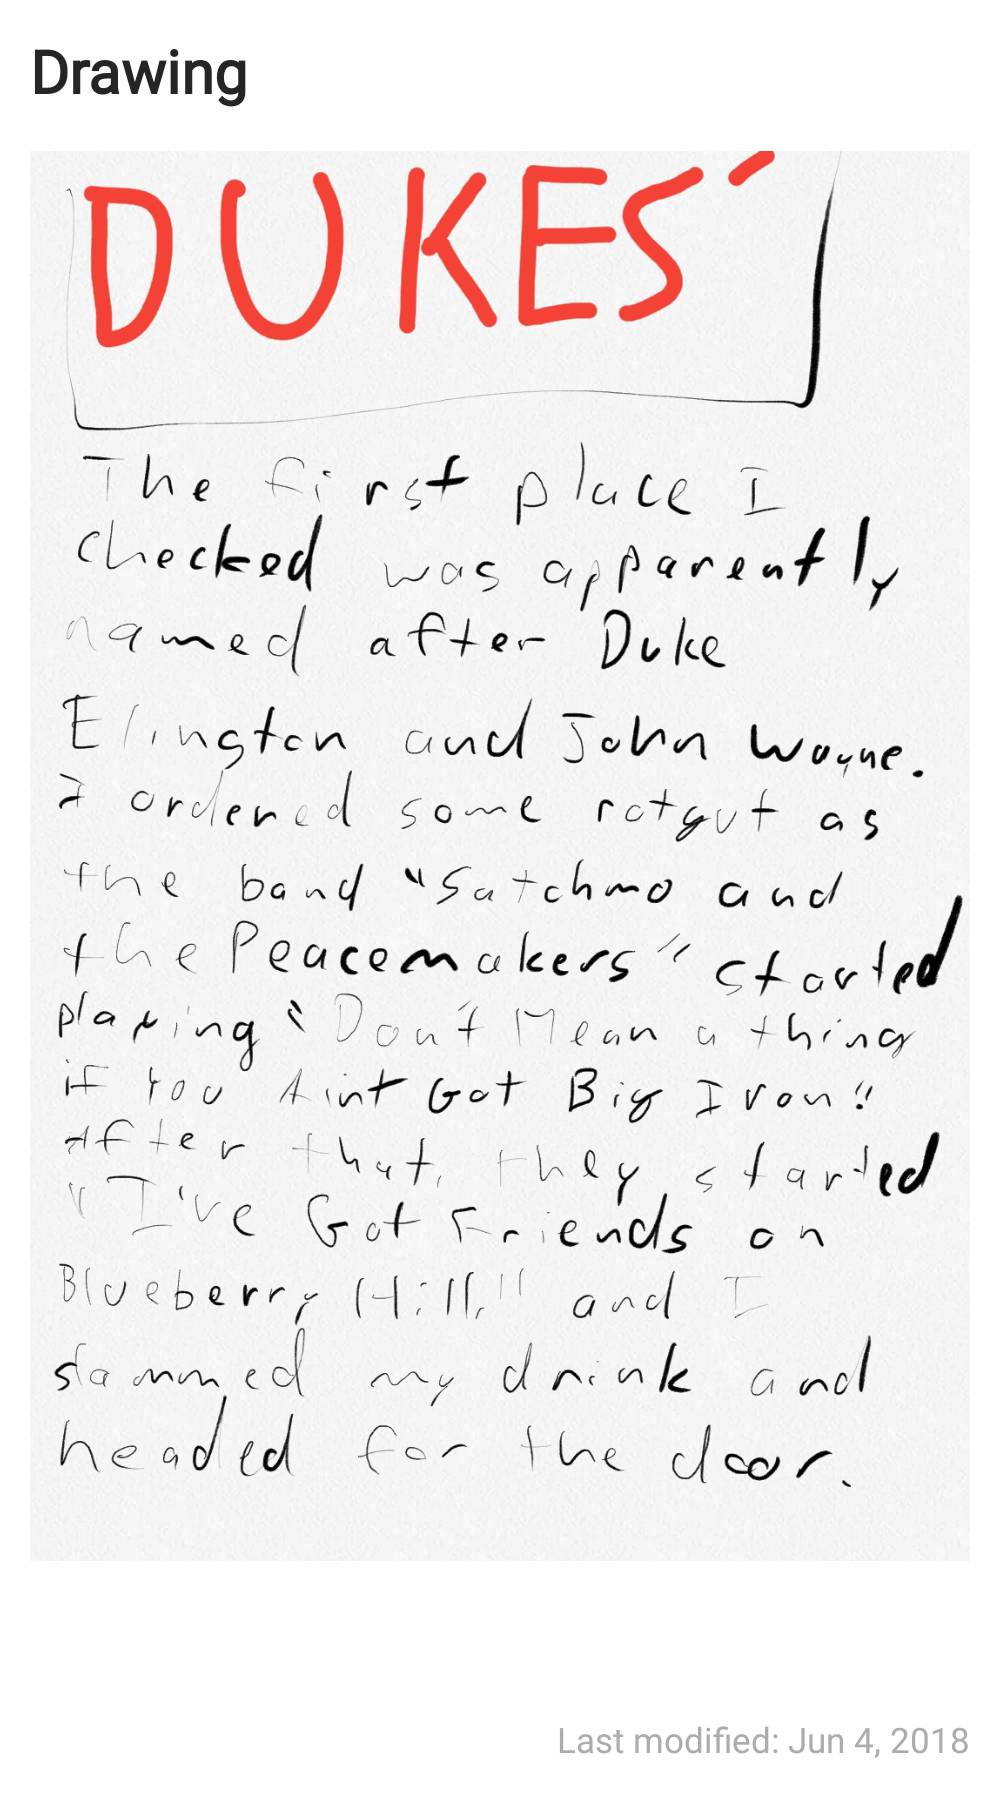 Drawing
DUKES'
The first place I
checked was apparently
named after Duke
Elington and John Wayne.
I ordered some rotgut as
the band "Satchmo and
the Peacemakers" started
playing "Don't Mean a thing
if You Aint Got Big Iron."
After that, they started
"I've Got Friends on
Blueberry Hill," and I
slammed my drink and
headed for the door.
Last modified: Jun 4, 2018